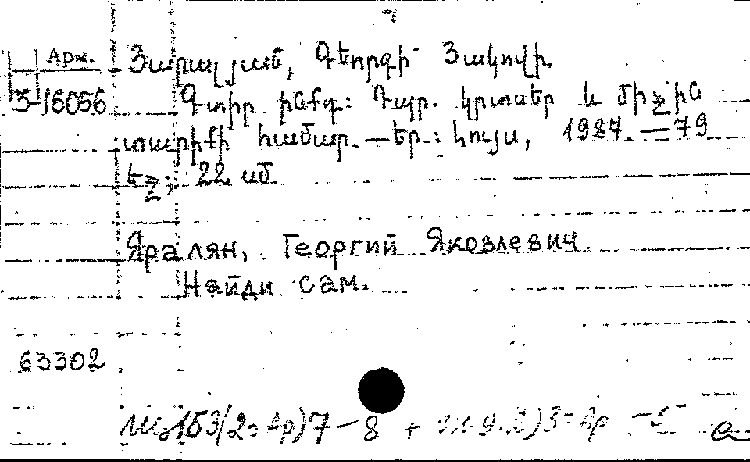 Арм.
Յարալյան, Գեորգի Յակովլի.
3-16056
Գտիր ինքդ: Դպր. կրտսեր և միջին
տարիքի համար. — Եր.: Լույս, 1987. — 79
էջ; 22 սմ.
Яралян, Георгий Яковлевич.
Найди сам.
63302